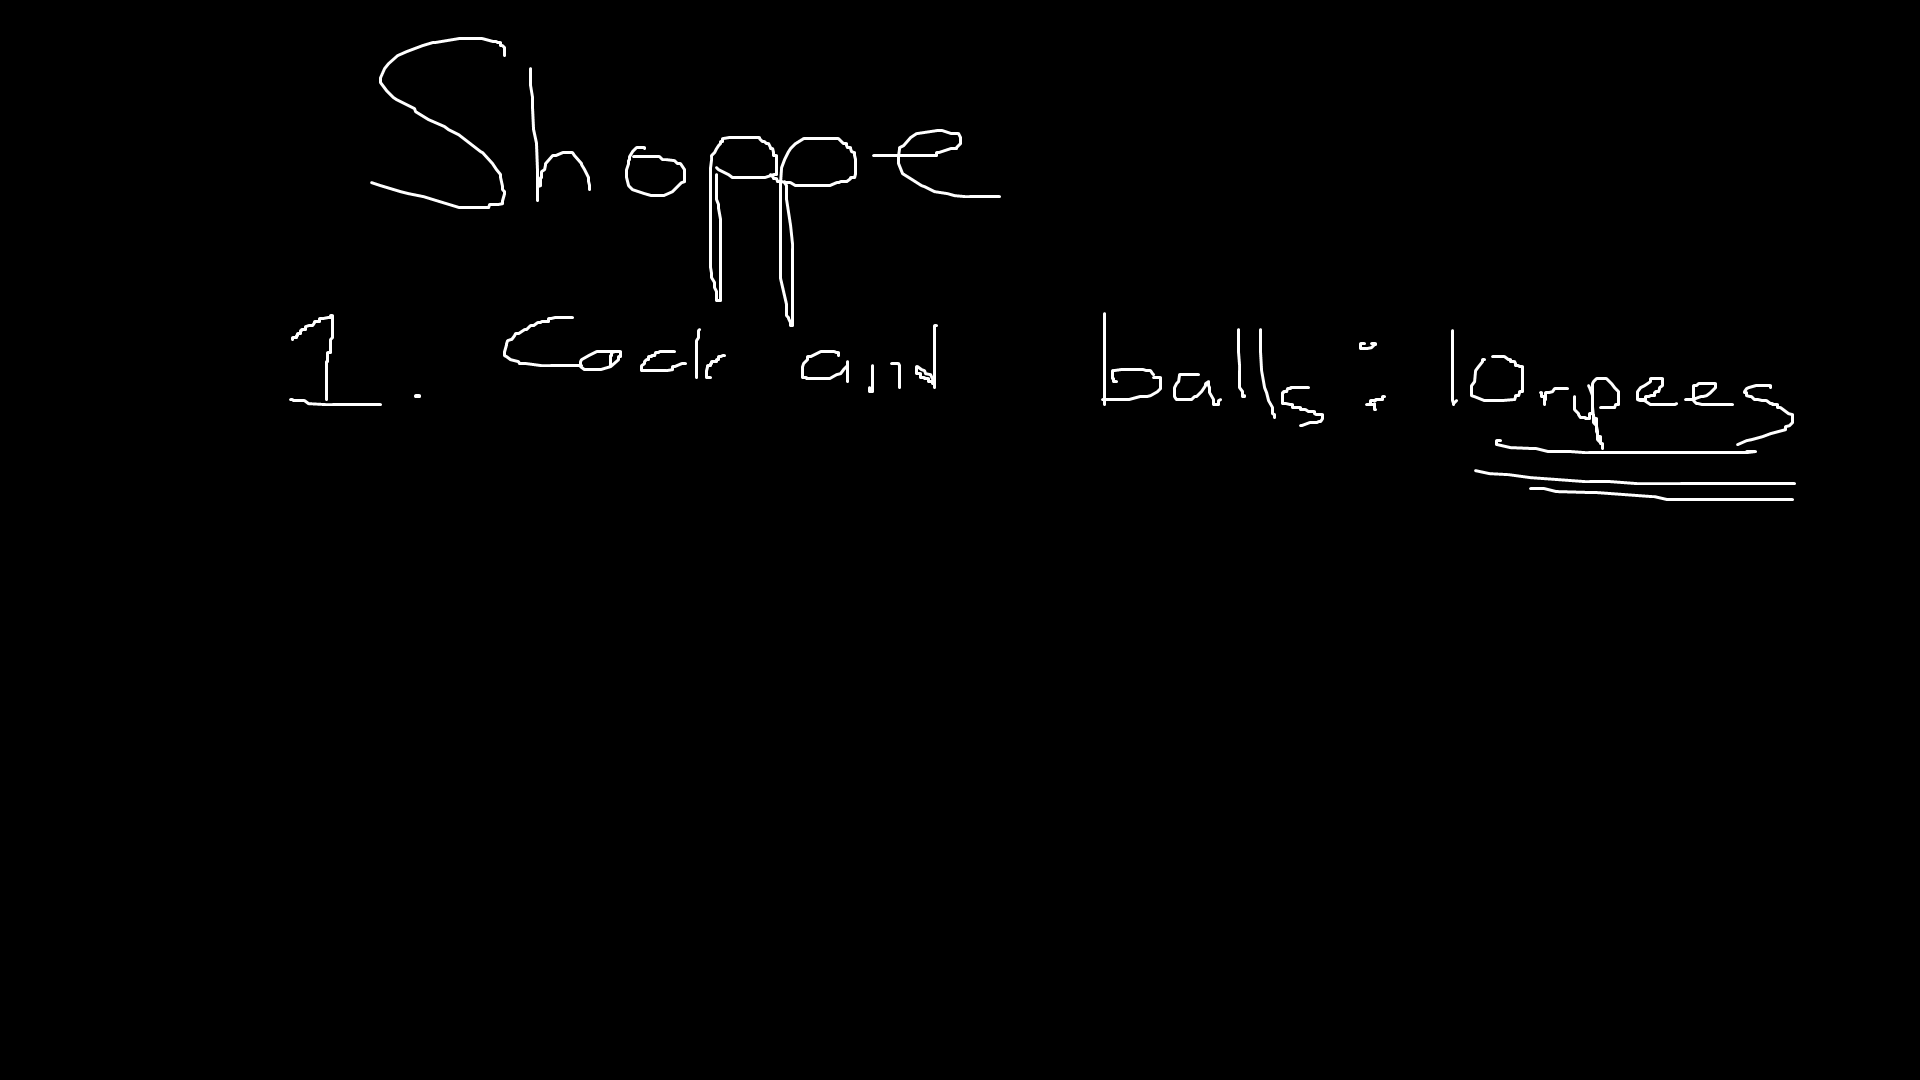 Shoppe
1. Cock and balls: 10rupees